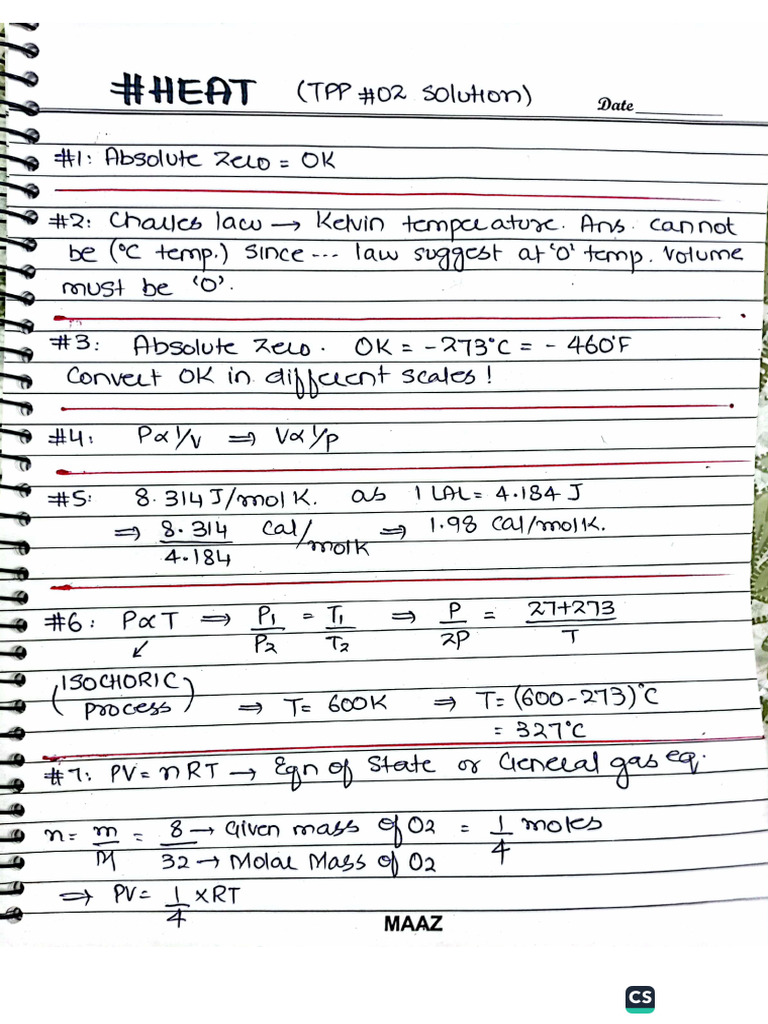 #HEAT (TPP #02 Solution) Date
#1: Absolute Zero = 0K
#2: Charles law → Kelvin temperature. Ans. cannot
be (°C temp.) since --- law suggest at '0' temp. volume
must be '0'.
#3: Absolute Zero. 0K = -273°C = - 460°F
Convert 0K in different scales!
#4: P∝1/V ⇒ V∝1/P
#5: 8.314 J/mol K. as 1 CAL = 4.184 J
⇒ 8.314/4.184 Cal/molk ⇒ 1.98 Cal/molK.
#6: P∝T ⇒ P1/P2 = T1/T2 ⇒ P/2P = 27+273/T
↙
(ISOCHORIC process) ⇒ T= 600K ⇒ T= (600-273)°C
= 327°C
#7: PV= nRT → Eqn of State or General gas eq.
n= m/M = 8 → Given mass of O2 = 1/4 moles
32 → Molar Mass of O2
⇒ PV= 1/4 ×RT
MAAZ
CS